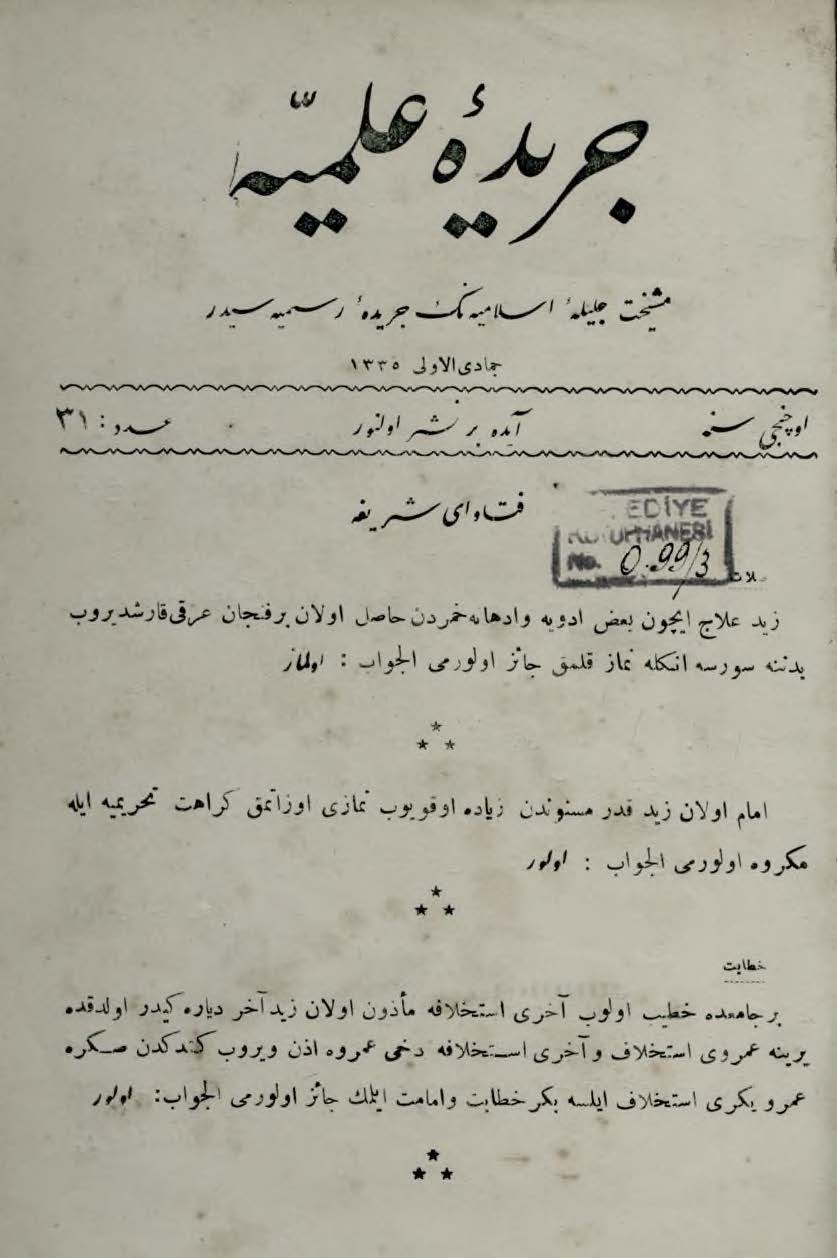 جريدۀ علميّه
مشيخت جليلۀ اسلاميه نك جريدۀ رسميه سيدر
جمادى الاولى ١٣٣٥
اوچنجى سنه
آيده بر نشر اولنور
عدد : ٣١
فتاواى شريفه
EDİYE
KÜTÜPHANESİ
No. 0.99/3
زيد علاج ايچون بعض ادويه وادهانه خمردن حاصل اولان برفنجان عرقى قارشديروب
بدننه سورسه انكله نماز قلمق جائز اولورمى الجواب : اولماز
امام اولان زيد قدر مسنوندن زياده اوقويوب نمازى اوزاتمق كراهت تحريميه ايله
مكروه اولورمى الجواب : اولور
خطابت
بر جامعده خطيب اولوب آخرى استخلافه مأذون اولان زيد آخر دياره كيدر اولدقده
يرينه عمروى استخلاف و آخرى استخلافه دخى عمروه اذن ويروب كندكدن صكره
عمرو بكرى استخلاف ايلسه بكر خطابت وامامت ايلمك جائز اولورمى الجواب: اولور